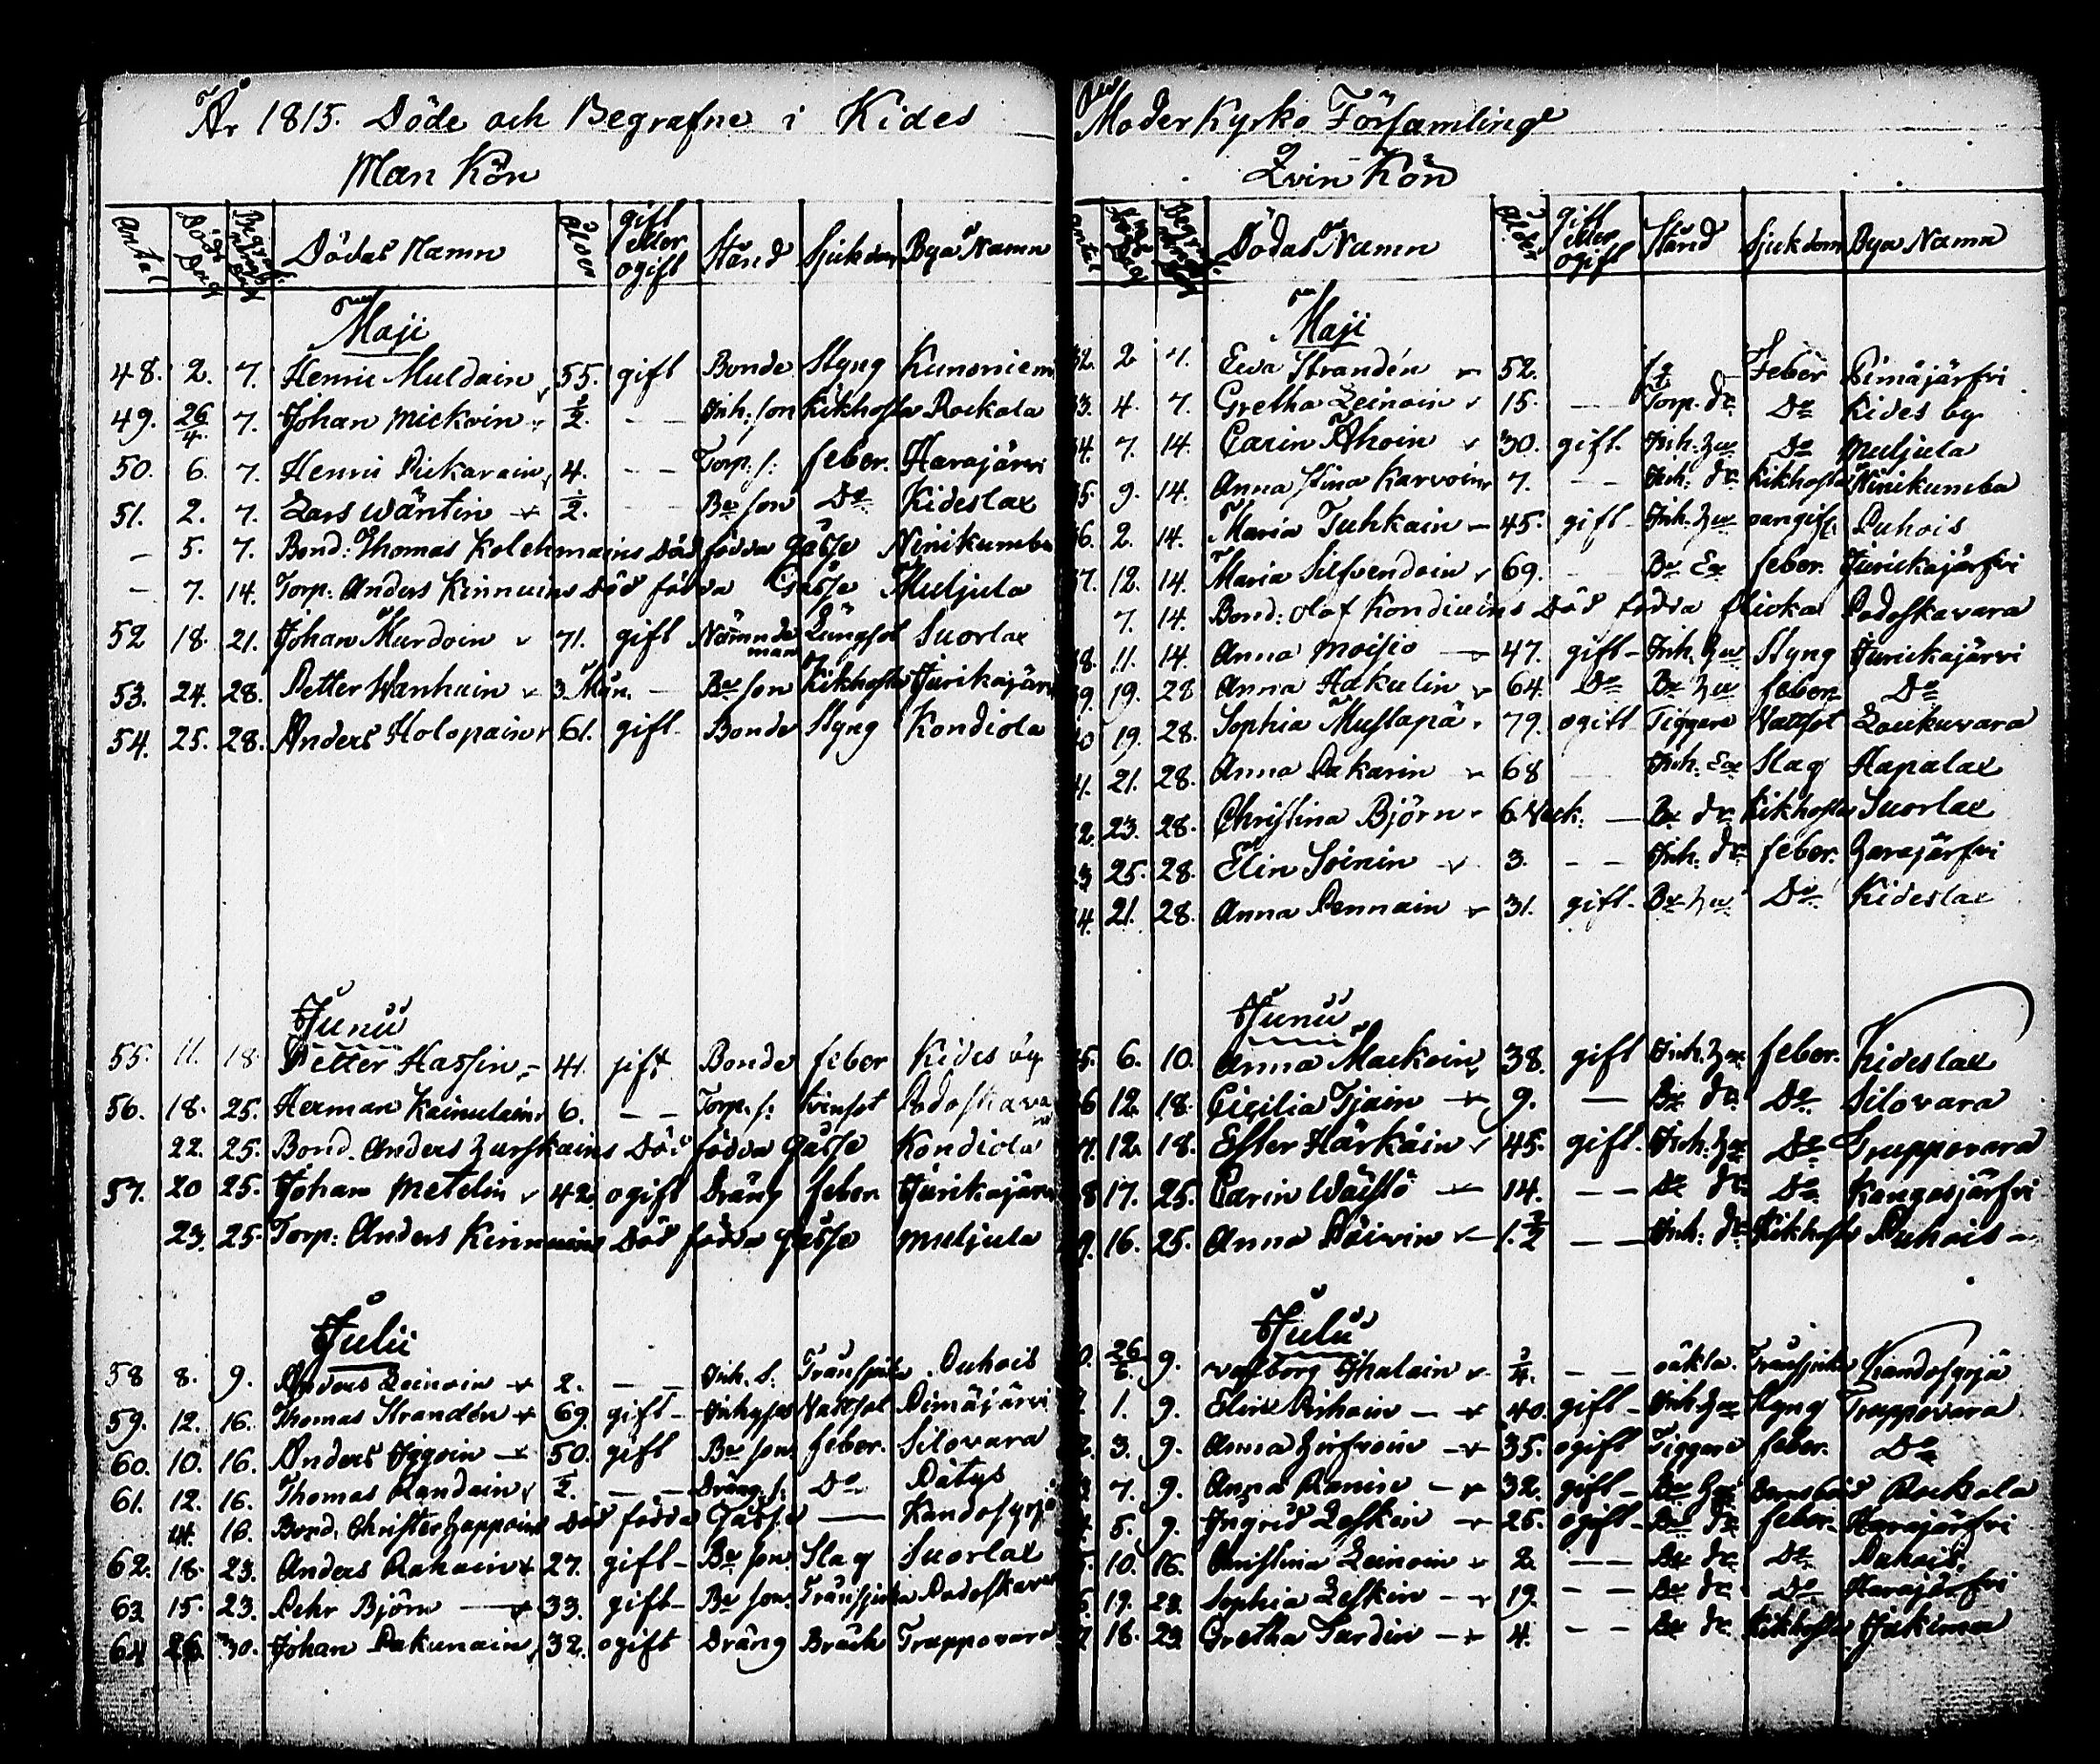 År 1815. Döde och Begrafne i Kides
Man Kön
Antal Döds Dag Begrafnings Dag Dödas Namn Ålder gift eller ogift Stånd Sjukdom Bya Namn
Maji
48. 2. 7. Henric Muldain 55. gift Bonde Styng Kunoniemi
49. 26/4. 7. Johan Mickoin 1/2. — — Inh: son Kikhosta Rockala
50. 6. 7. Henric Pickarain 4. — — Torp. s: feber. Harajärvi
51. 2. 7. Lars Wäntin 1/2. — — Be son Do Kideslax
— 5. 7. Bond: Thomas Kolehmains Död födda Gåsse Ninikumba
— 7. 14. Torp: Anders Kinnuins Död födda Gåsse Muljula
52 18. 21. Johan Murdoin 71. gift Nämndeman Lungsot Suorlax
53. 24. 28. Petter Wanhain 3 Mån. — Be son Kikhosta Jurikajärvi
54. 25. 28. Anders Holopain 61. gift Bonde Styng Kondiola
Junii
55. 11. 18 Petter Hassin 41. gift Bonde feber Kides by
56. 18. 25. Herman Kainulain 6. — — Torp. s: Tvinsot Podoskavara
22. 25. Bond. Anders Hurskains Död födda Gåsse Kondiola
57. 20 25. Johan Metelin 42. ogift Dräng feber. Jurikajärvi
23. 25. Torp: Anders Kinnuins Död födda gåsse Muljula
Julii
58 8. 9. Anders Leinoin 2. — — Inh. S: Trånsjuka Puhois
59. 12. 16. Thomas Strandén 69. gift Inhyses Vattsot Pimäjärvi
60. 10. 16. Anders Iggoin 50. gift Be son feber. Silovara
61. 12. 16. Thomas Randain 1/2. — — Dräng. s: Do Pätys
14. 16. Bond. Christer Happoins Död födda Gåsse — Kandosyrjä
62. 18. 23. Anders Rahain 27. gift Be son Slag Suorlax
63 15. 23. Pehr Björn 33. gift Be son. Trånsjuka Podoskavara
64 26. 30. Johan Pakunain 32. ogift Dräng Bråck Trappovara
Moder Kyrko Församlinge
Qvin Kön
Antal Döds Dag Begrafnings Dag Dödas Namn Ålder gift eller ogift Stånd Sjukdom Bya Namn
Maji
32. 2 7. Ewa Strandén 52. Feber Pimäjärfvi
33. 4. 7. Gretha Leinoin 15. — Torp. dr Do Kides by
34. 7. 14. Carin Ahoin 30. gift. Inh. hu Do Muljula
35. 9. 14. Anna Stina Karvoin 7. — — Inh: dr Kikhosta Ninikumba
36. 2. 14. Maria Tuhkain 45. gift Inh. hu Puhois
37. 12. 14. Maria Silfvendoin 69. Be Ex feber. Jurickajärfvi
7. 14. Bond: Olof Kondiains Död födda flicka Podoskavara
38. 11. 14. Anna Moisio 47. gift Inh. hu Styng Jurickajärvi
39. 19. 28 Anna Hakulin 64. Do Be hu feber Do
40 19. 28. Sophia Mustapä 79. ogift Tiggare Vattsot Loukuvara
41. 21. 28. Anna Pakarin 68 — Inh. Ex Slag Hapalax
42. 23. 28. Christina Björn 6 Veck. — Be dr. Kikhosta Suorlax
43 25. 28. Elin Soinin 3. — — Inh: dr feber. Harajärfvi
44. 21. 28. Anna Pennain 31. gift Be hu Do Kideslax
Junii
45. 6. 10. Anna Mackoin 38. gift Inh. hu feber. Kideslax
46 12. 18. Cicilia Tjain 9. — Be dr Do Silovara
47. 12. 18. Ester Härkäin 45. gift Inh: hu Do Trappovara
48 17. 25. Carin Wäistö 14. — — Be dr Do Kangasjärfvi
49. 16. 25. Anna Päivin 1. 1/2 — — Inh: dr Kikhosta Puhois
Julii
50. 26/6. 9. Valborg Ihalain 3/4. — — oäkta. Trånsjuka Kandosyrjä
1. 9. Elin Pirhoin 40. gift Inh. hu Styng Trappovara
3. 9. Anna Hirfvoin 35. ogift Tiggare feber. Do
7. 9. Anna Ranin 32. gift Be hu Barnsbörd Rockala
5. 9. Ingrid Leskin 25. ogift Be dr feber. Harajärfvi
10. 16. Christina Leinoin 2. — — Be dr Do Puhois
19. 23. Sophia Leskin 19. — — Be dr Do Harajärfvi
18. 23 Gretha Turdin 4. — — Be dr Kikhosta Jukima